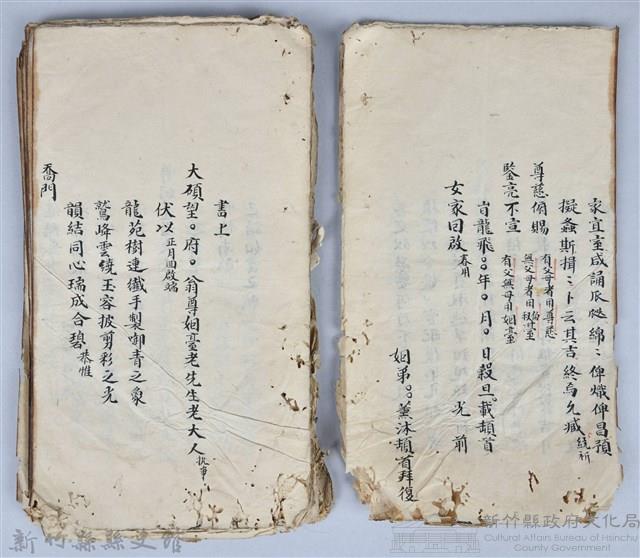 家宜室咸誦瓜瓞綿〻俾熾俾昌預
擬螽斯揖〻卜云其吉終焉允臧統祈
尊慈俯賜
有父母者用尊慈
無父母者用
鑒亮不宣
有父無母用姻臺
旹龍飛○○年○月○日穀旦載頓首
女家回啟春用 光前
姻弟○○薰沐頓首拜復
書上
大碩望○府○翁尊姻臺老先生老大人執事
伏以正月回啟端
龍苑樹連纖手製卸青之象
鷲峰雲繞玉容披剪彩之光
韻結同心瑞成合碧恭惟
喬門
新竹縣縣史館
新竹縣政府文化局
Cultural Affairs Bureau of Hsinchu
County Government